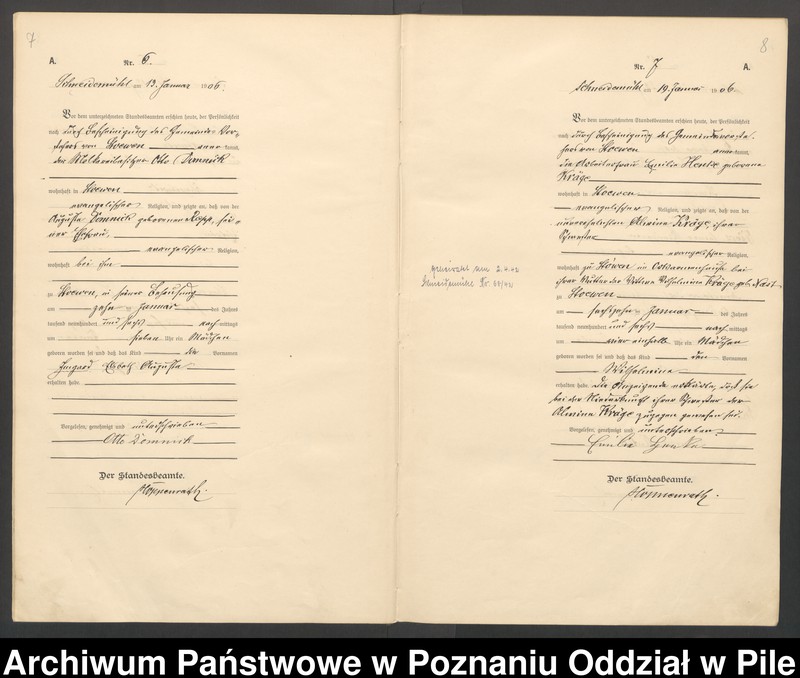 7
A.
Nr. 6.
Schneidemühl am 13. Januar 1906.
Vor dem unterzeichneten Standesbeamten erschien heute, der Persönlichkeit
nach durch Bescheinigung des Gemeinde-Vor-
stehers von Stoewen aner kannt,
der Molkereibesitzer Otto Domnick
wohnhaft in Stoewen
evangelischer Religion, und zeigte an, daß von der
Auguste Domnick geborenen Rapp, sei-
ner Ehefrau,
evangelischer Religion,
wohnhaft bei ihm
zu Stoewen, in seiner Behausung
am zehn ten Januar des Jahres
tausend neunhundert und sechs nach mittags
um sieben Uhr ein Mädchen
geboren worden sei und daß das Kind die Vornamen
Auguste
erhalten habe.
Vorgelesen, genehmigt und unterschrieben
Otto Domnick
Der Standesbeamte.
8
Nr. 7
A.
Schneidemühl am 19. Januar 1906.
Vor dem unterzeichneten Standesbeamten erschien heute, der Persönlichkeit
nach durch Bescheinigung des Gemeindevorste-
hers von Stoewen aner kannt,
die Arbeiterfrau Emilie Henke geborene
Kräge
wohnhaft in Stoewen
evangelischer Religion, und zeigte an, daß von der
unverehelichten Alwine Kräge, ihrer
Schwester
evangelischer Religion,
wohnhaft zu Stöwen im bei
ihrer Mutter der Witwe Wilhelmine Kräge geb.
zu Stoewen
am sechszehn ten Januar des Jahres
tausend neunhundert und sechs nach mittags
um vier einhalb Uhr ein Mädchen
geboren worden sei und daß das Kind den Vornamen
Wilhelmine
erhalten habe. Die Anzeigende erklärte, daß sie
bei der Niederkunft ihrer Schwester der
Alwine Kräge zugegen gewesen sei.
Vorgelesen, genehmigt und unterschrieben.
Emilie Henke
Der Standesbeamte.
Archiwum Państwowe w Poznaniu Oddział w Pile